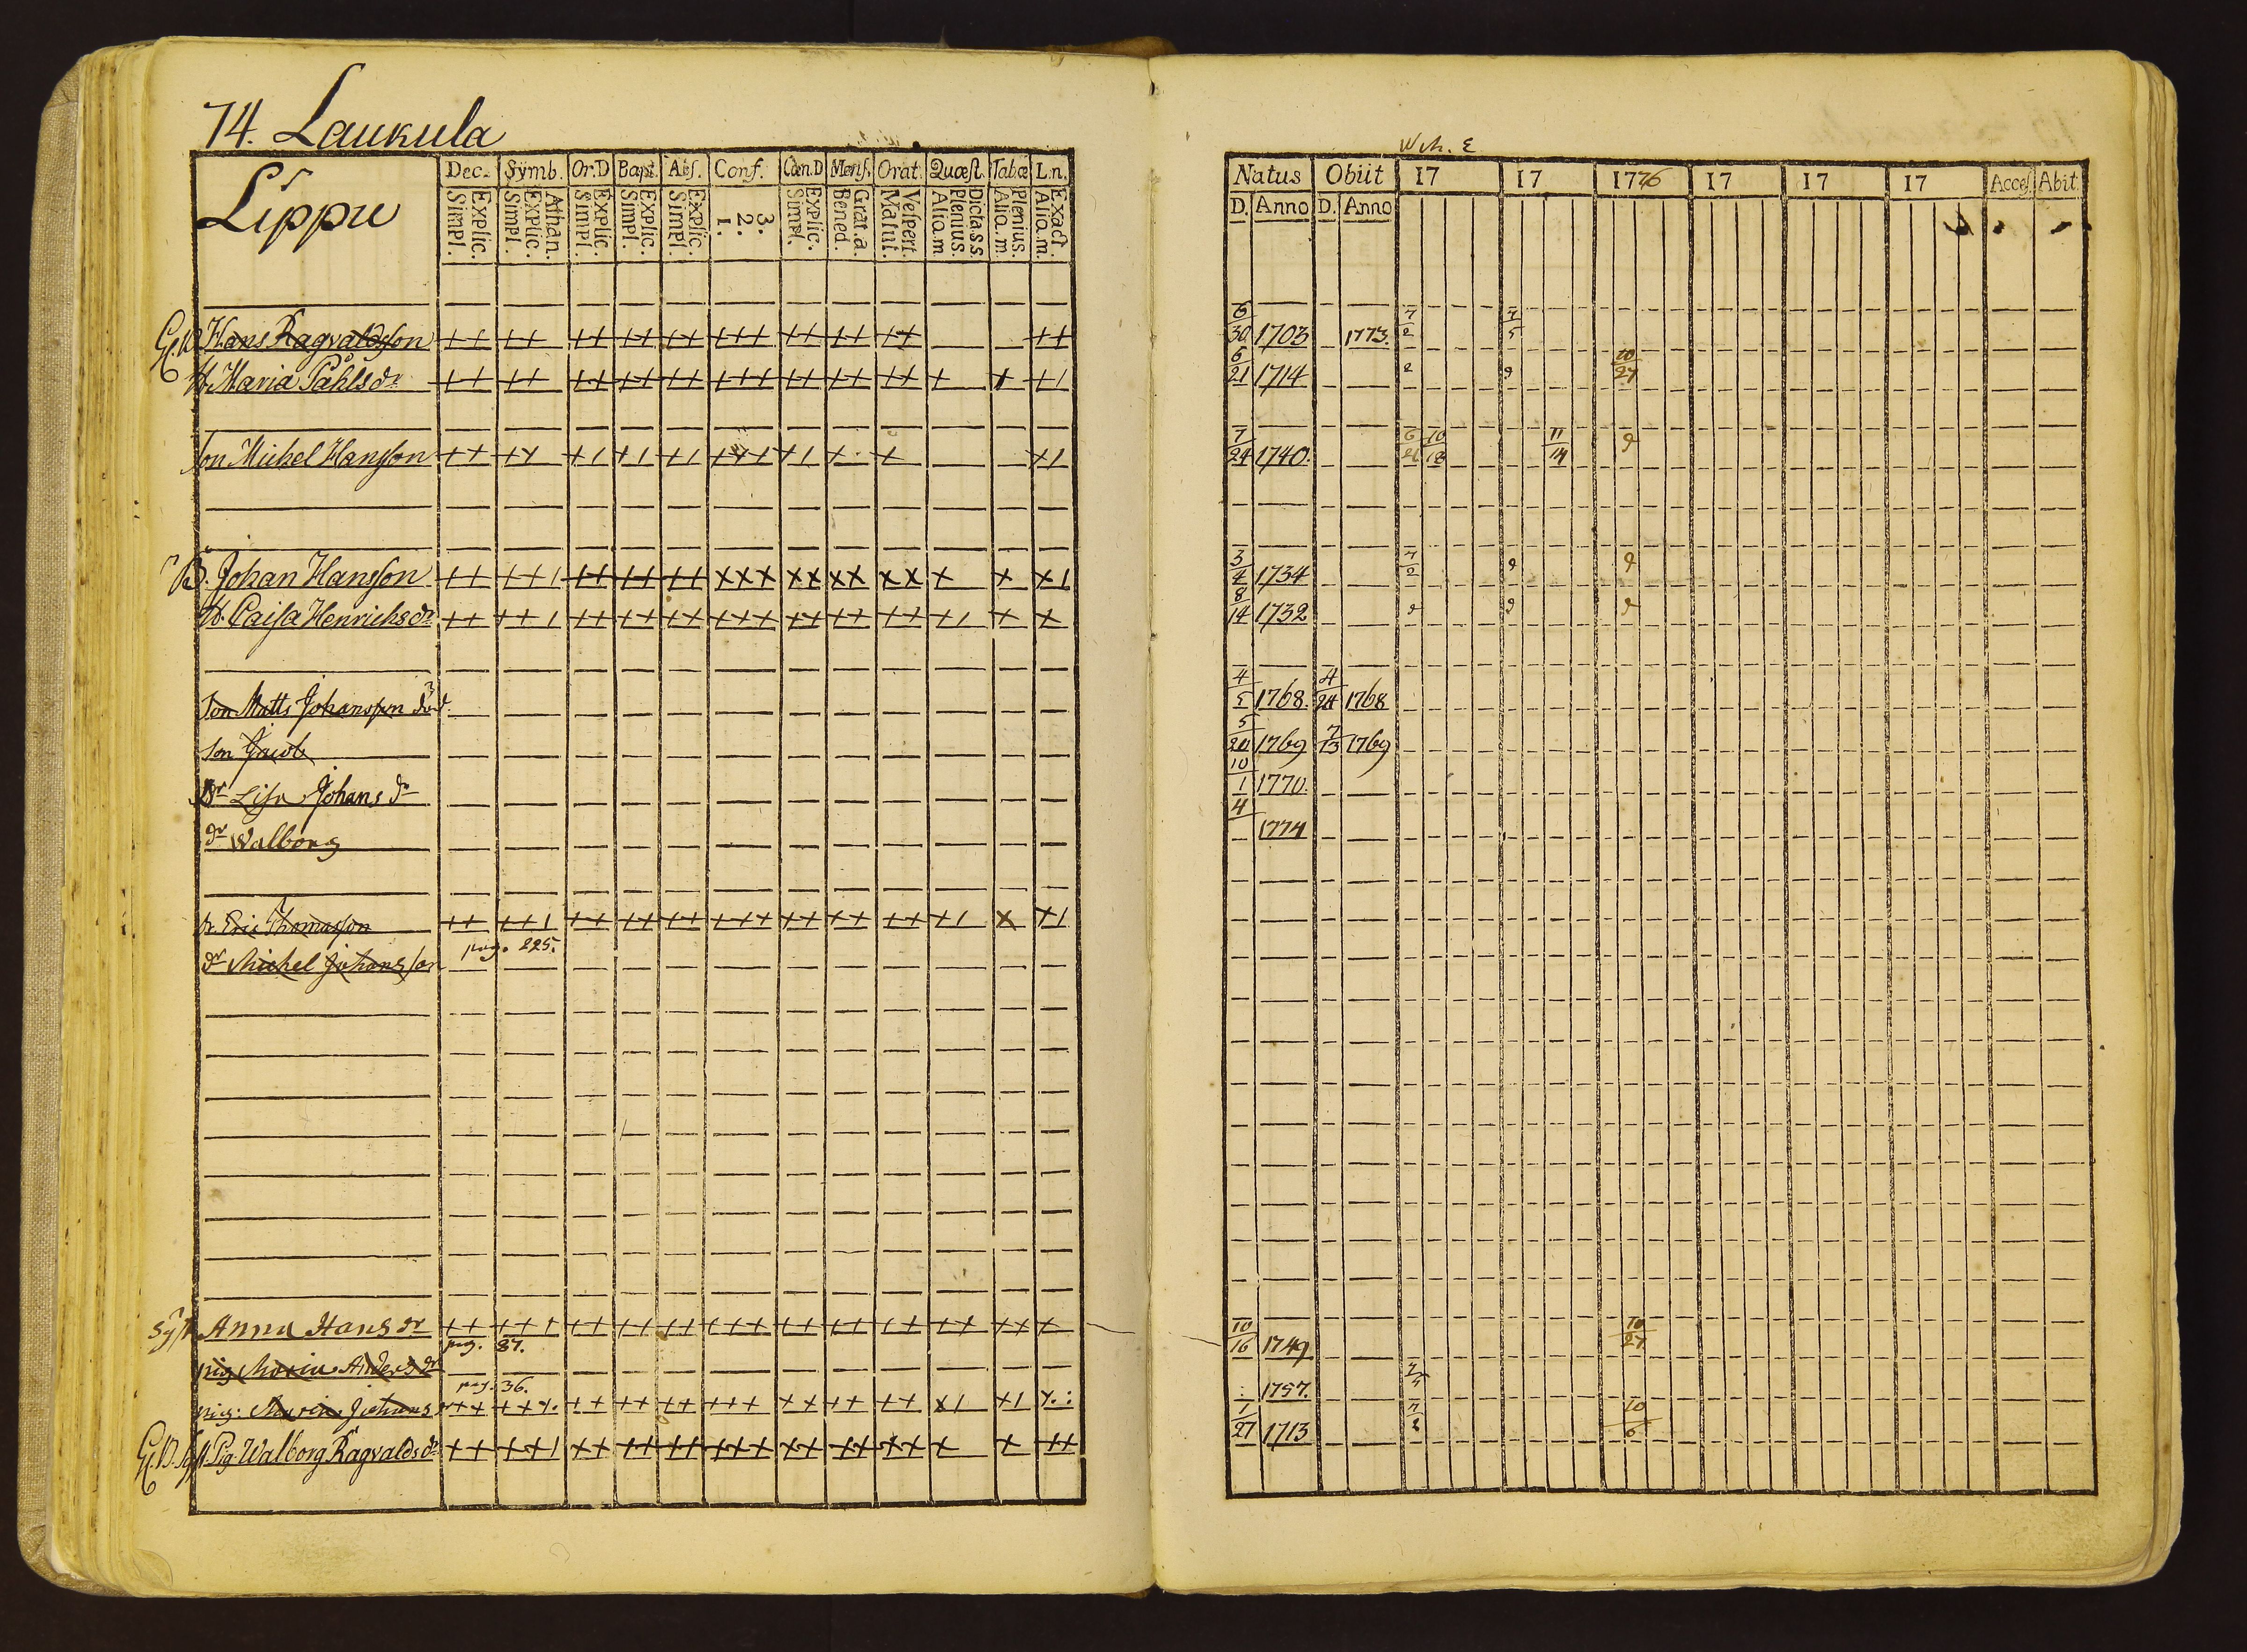 74. Laukula
Lippu
Dec. Symb. Or.D Bapt. Abs. Conf. Cœn.D Mens. Orat. Quæst. Tabæ L.n.
Explic. Simpl. Athan. Explic. Simpl. Explic. Simpl. Explic. Simpl. Explic. Simpl. 3. 2. 1. Explic. Simpl. Grat.a. Bened. Vespert. Matut. Dicta s.s. Plenius. Aliq.m. Plenius. Aliq.m. Exact Aliq.m.
Natus Obiit 17 17 1776 17 17 17 Acces. Abit
D. Anno D. Anno
Hans Ragvaldsson ++ ++ ++ ++ ++ +++ ++ ++ ++ ++ 6/30 1703 1773. 7/2 7/5
H. Maria Påhlsdr ++ ++ ++ ++ ++ +++ ++ ++ ++ + + +1 6/21 1714 10/27
Son Michel Hansson ++ ++ +1 +1 +1 +++ +1 + + +1 7/24 1740. 10/18 11/14
B. Johan Hansson ++ ++1 ++ ++ ++ xxx xx xx xx + + +1 3/4 1734 7/2
H. Caisa Henrichsdr ++ ++1 ++ ++ ++ +++ ++ ++ ++ +1 + + 8/14 1732
Son Matts Johansson död. 4/5 1768. 4/24 1768
Son Jacob 5/20 1769 7/13 1769
Dr Lisa Johansdr 10/1 1770.
dr Walborg 4 1774
Eric Thomasson ++ ++1 ++ ++ ++ +++ ++ ++ ++ +1 x +1
pag. 225.
dr Michel Johansson
Syst. Anna Hansdr ++ +++ ++ ++ ++ +++ ++ ++ ++ ++ ++ + 10/16 1749 10/27
pag. 87.
pig Maria Andersdr 1757.
pag. 36.
pig: Maria Johans
Pig. Walborg Ragvaldsdr ++ ++1 ++ ++ ++ +++ ++ ++ ++ + + ++ 1/27 1713 7/2 10/6